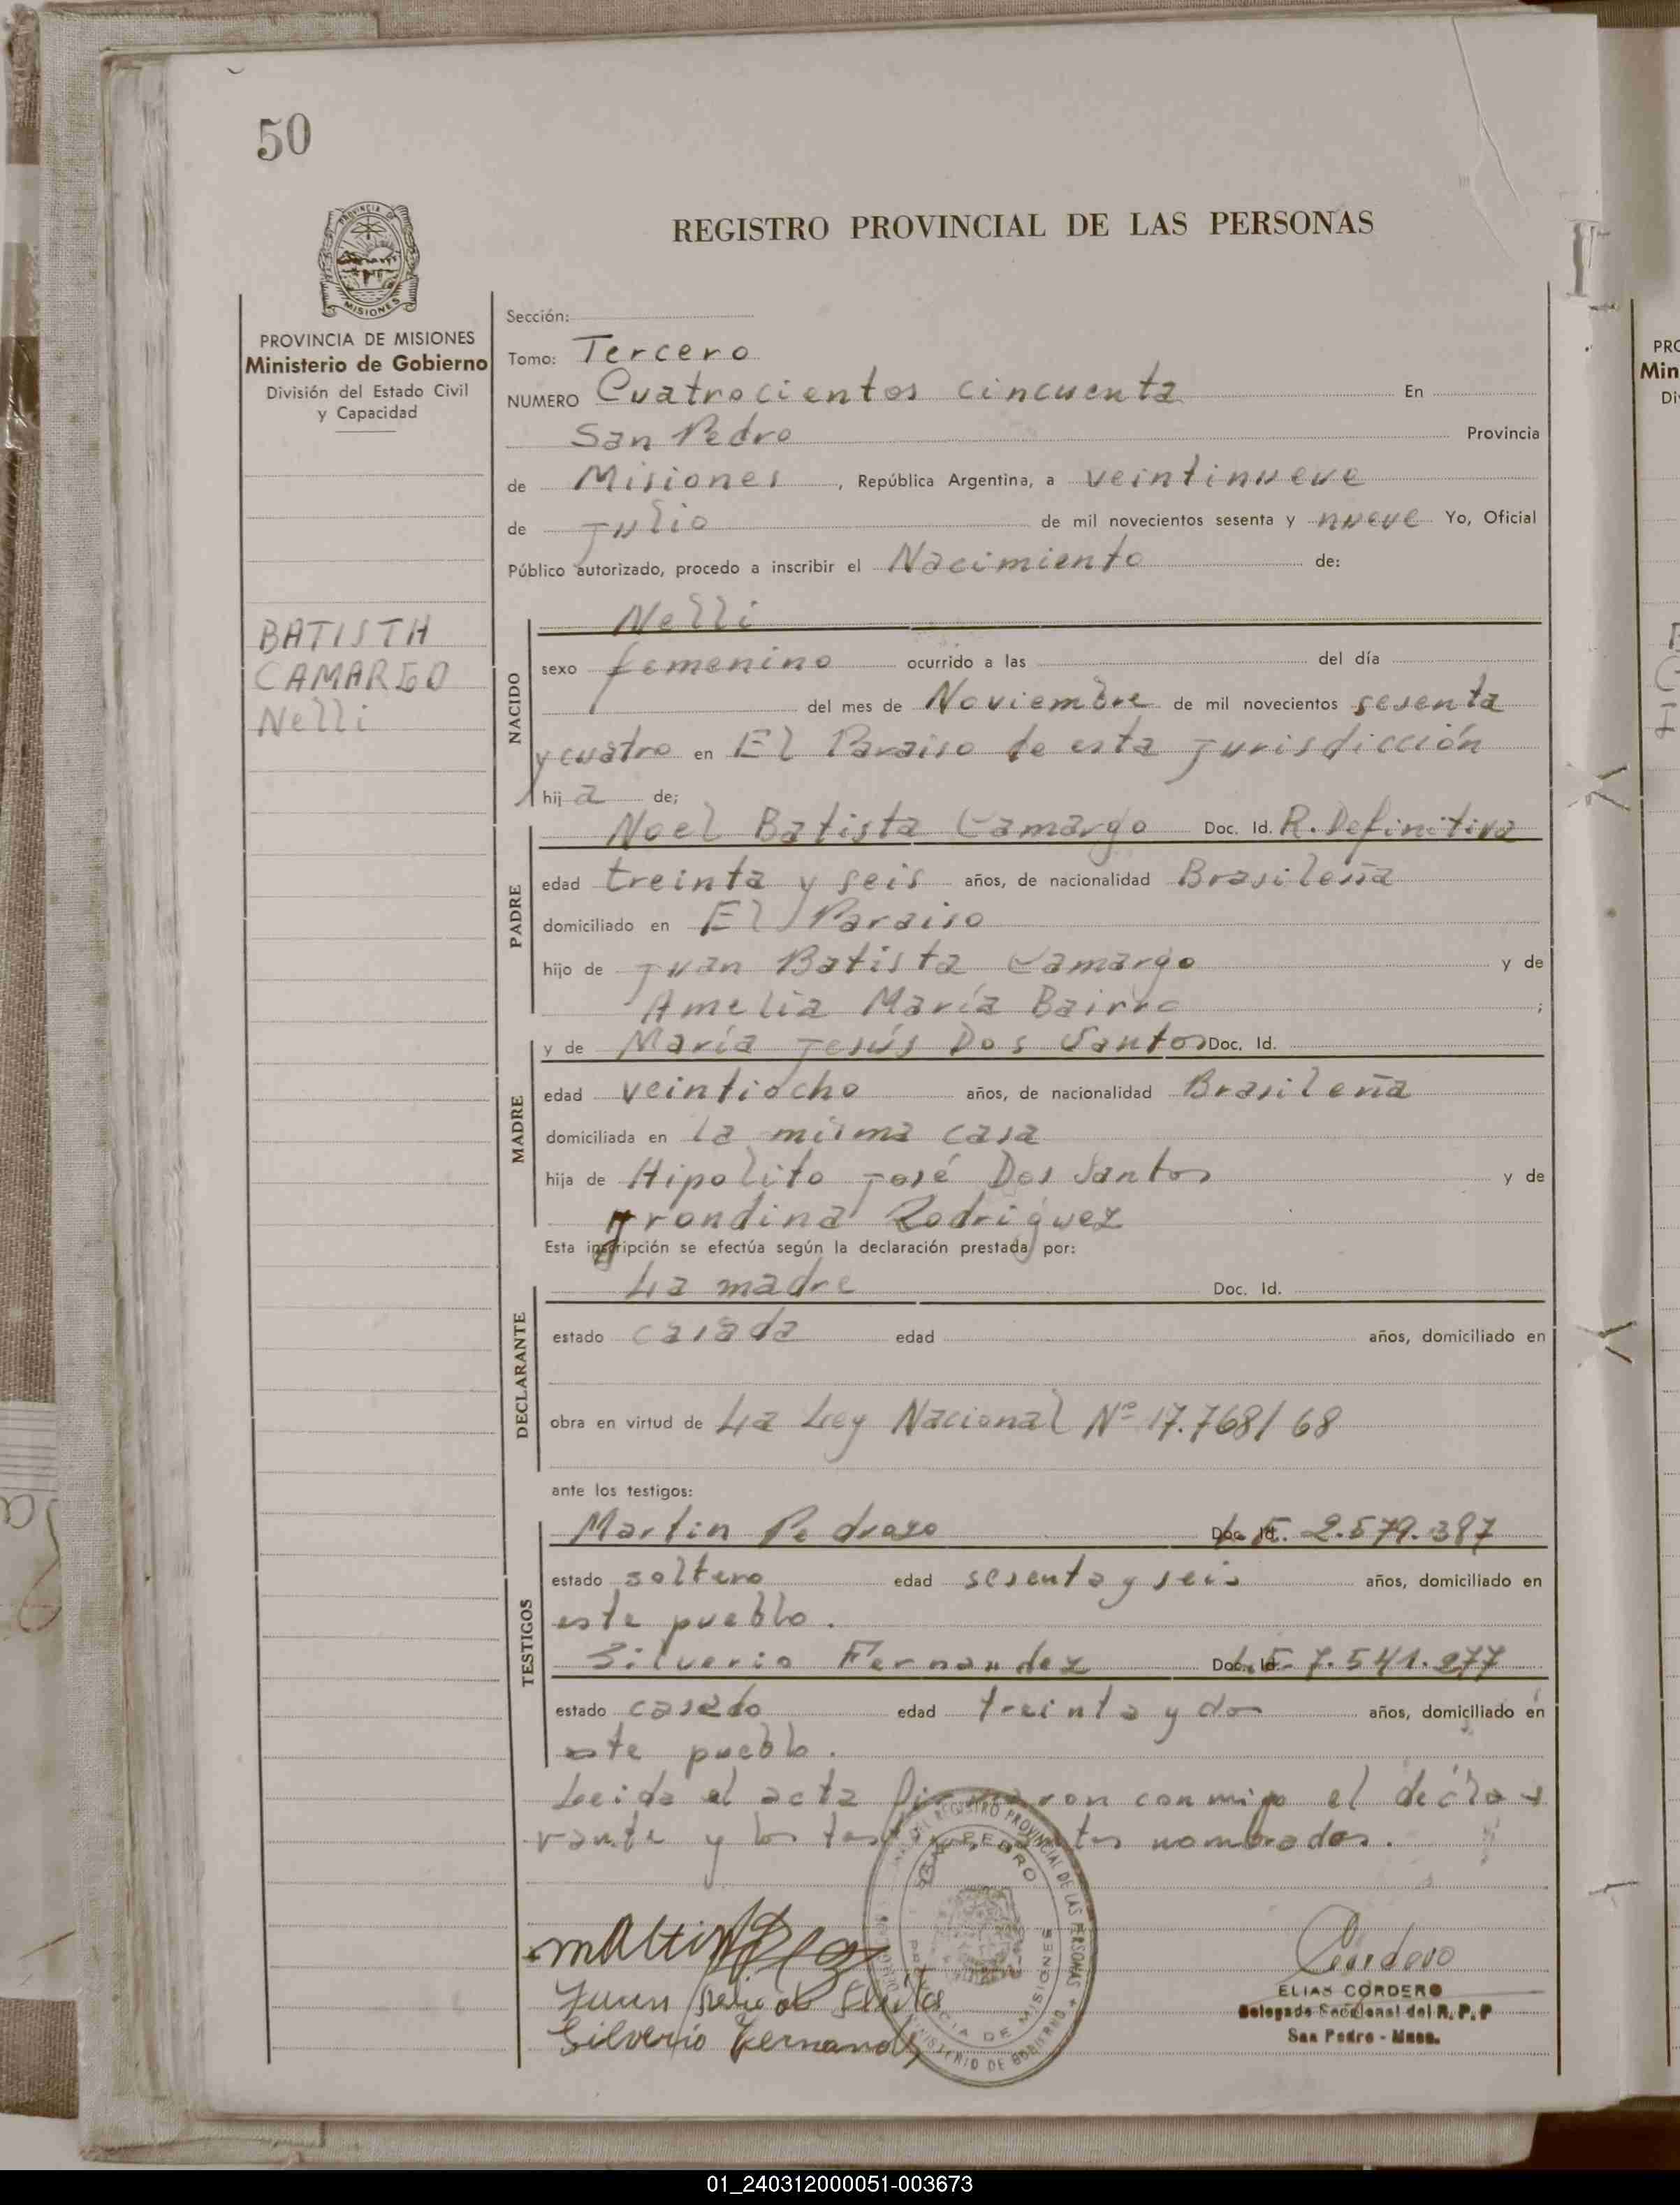 50
PROVINCIA DE
MISIONES
REGISTRO PROVINCIAL DE LAS PERSONAS
PROVINCIA DE MISIONES
Ministerio de Gobierno
División del Estado Civil
y Capacidad
BATISTA
CAMARGO
Nelli
Sección:
Tomo: Tercero
NUMERO Cuatrocientos cincuenta En
San Pedro Provincia
de Misiones, República Argentina, a veintinueve
de Julio de mil novecientos sesenta y nueve Yo, Oficial
Público autorizado, procedo a inscribir el Nacimiento de:
NACIDO
Nelli
sexo femenino ocurrido a las del día
del mes de Noviembre de mil novecientos sesenta
y cuatro en El Paraiso de esta Jurisdicción
hij a de;
PADRE
Noel Batista Camargo Doc. Id. R. Definitiva
edad treinta y seis años, de nacionalidad Brasileña
domiciliado en El Paraiso
hijo de Juan Batista Camargo y de
Amelia María Bairro ;
MADRE
y de María Jesús Dos Santos Doc. Id.
edad veintiocho años, de nacionalidad Brasileña
domiciliada en la misma casa
hija de Hipolito José Dos Santos y de
Jrondina Rodriguez
Esta inscripción se efectúa según la declaración prestada por:
DECLARANTE
La madre Doc. Id.
estado casada edad años, domiciliado en
obra en virtud de La Ley Nacional Nº 17.768/68
ante los testigos:
TESTIGOS
Martin Pedrozo Doc. Id. L.E. 2.579.387
estado soltero edad sesenta y seis años, domiciliado en
este pueblo.
Silverio Fernandez Doc. Id. L.E. 7.541.277
estado casado edad treinta y dos años, domiciliado en
este pueblo.
Leida el acta firmaron conmigo el decla-
rante y los testigos antes nombrados.
REGISTRO PROVINCIAL DE LAS PERSONAS
SAN PEDRO
PROVINCIA DE MISIONES
MINISTERIO DE GOBIERNO
Silverio Fernandez
Cordero
ELIAS CORDERO
Delegado Seccional del R. P. P
San Pedro - Mnes.
PRO
Min
Di
01_240312000051-003673